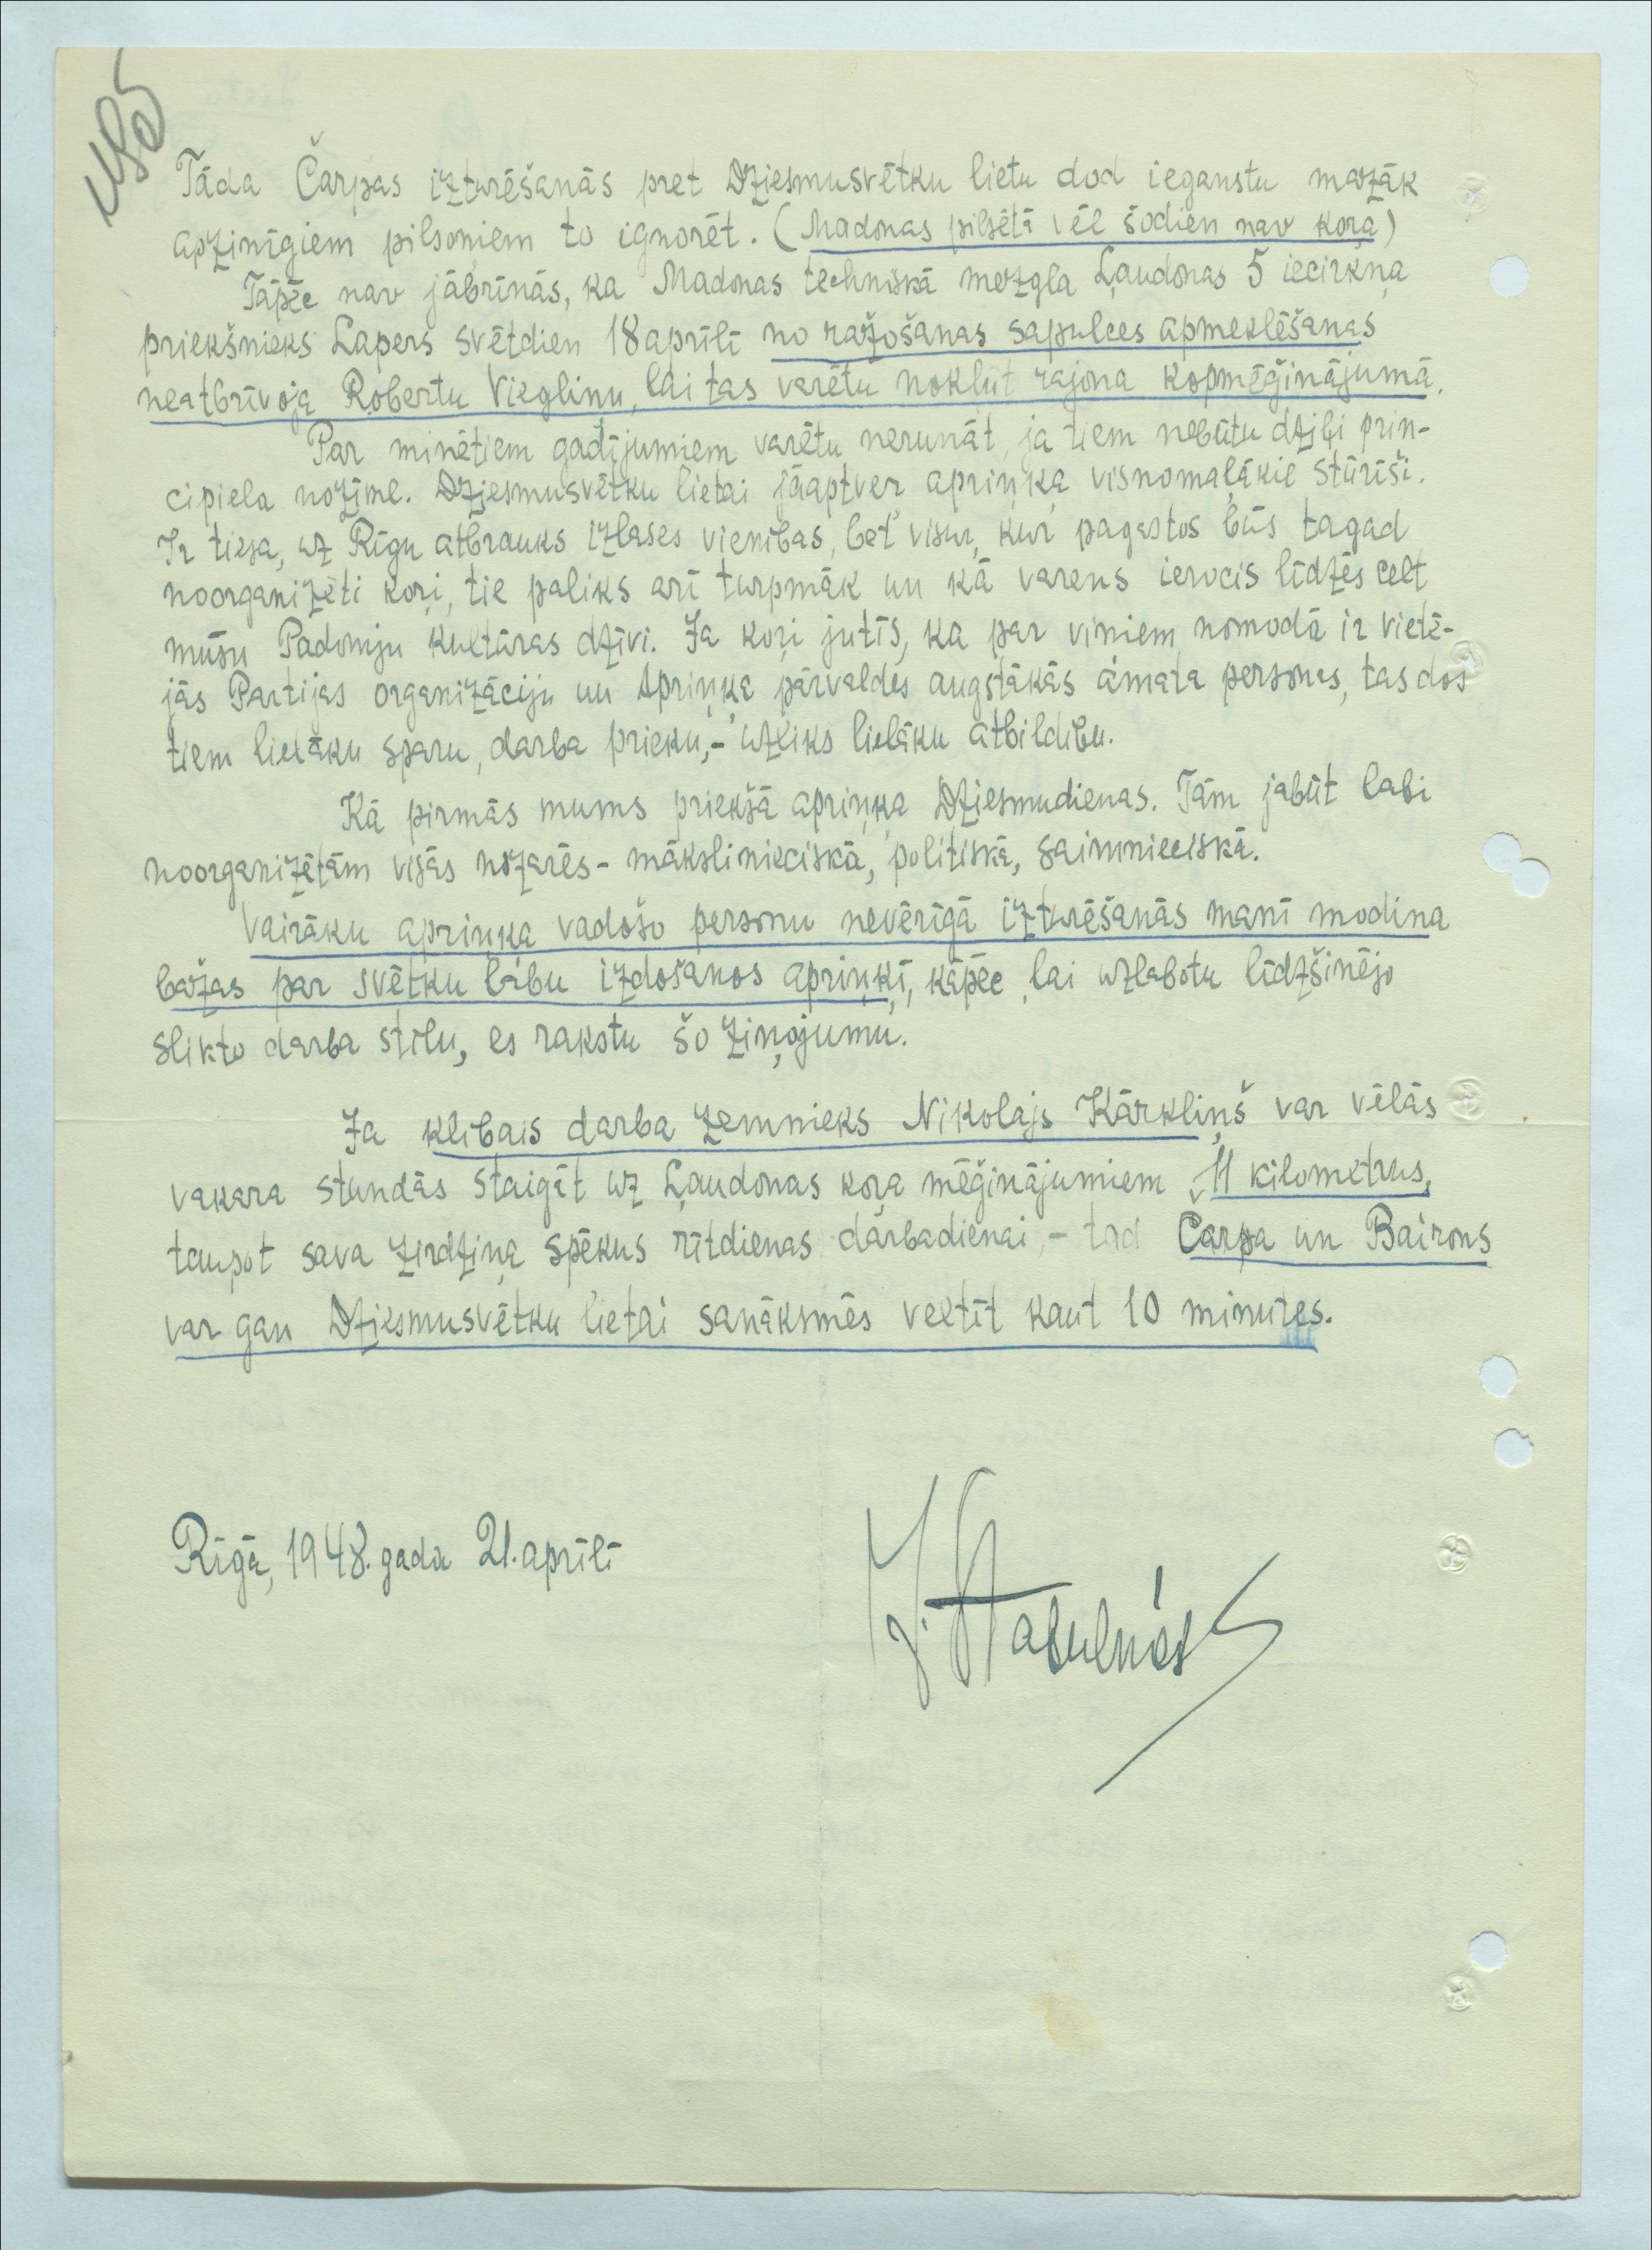 Tāda Čarpas izturēšanās pret Dziesmusvētku lietu dod ieganstu mazāk
apzinīgiem pilsoņiem to ignorēt. (Madonas pilsētā vēl šodien nav kora)
Tāpēc nav jābrīnās, ka Madonas techniskā mezgla Ļaudonas 5 iecirkņa
priekšnieks Lapers svētdien 18 aprīlī no ražošanas sapulces apmeklēšanas
neatbrīvoja Robertu Viegliņu, lai tas varētu nokļūt rajona kopmēģinājumā.
Par minētiem gadījumiem varētu nerunāt, ja tiem nebūtu dziļi prin-
cipiela nozīme. Dziesmusvētku lietai jāaptver apriņķa visnomaļākie stūrīši.
Ir tiesa, uz Rīgu atbrauks izlases vienības, bet visur, kur pagastos būs tagad
noorganizēti koŗi, tie paliks arī turpmāk un kā varens ierocis līdzēs celt
mūsu Padomju kultūras dzīvi. Ja koŗi jutīs, ka par viņiem nomodā ir vietē-
jās Partijas organizāciju un Apriņķa pārvaldes augstākās amata personas, tas dos
tiem lielāku sparu, darba prieku,- uzliks lielāku atbildību.
Kā pirmās mums priekšā apriņķa Dziesmudienas. Tām jabūt labi
noorganizētām visās nozarēs - mākslinieciskā, politiskā, saimnieciskā.
Vairāku apriņķa vadošo personu nevērīgā izturēšanās manī modina
bažas par svētku labu izdošanos apriņķī, kāpēc, lai uzlabotu līdzšinējo
slikto darba stilu, es rakstu šo ziņojumu.
Ja klibais darba zemnieks Nikolajs Kārkliņš var vēlās
vakara stundās staigāt uz Ļaudonas koŗa mēģinājumiem 11 kilometrus,
taupot sava zirdziņa spēkus rītdienas darbadienai,- tad Čarpa un Bairons
var gan Dziesmusvētku lietai sanāksmēs veltīt kaut 10 minutes.
Rīgā, 1948. gada 21. aprīlī